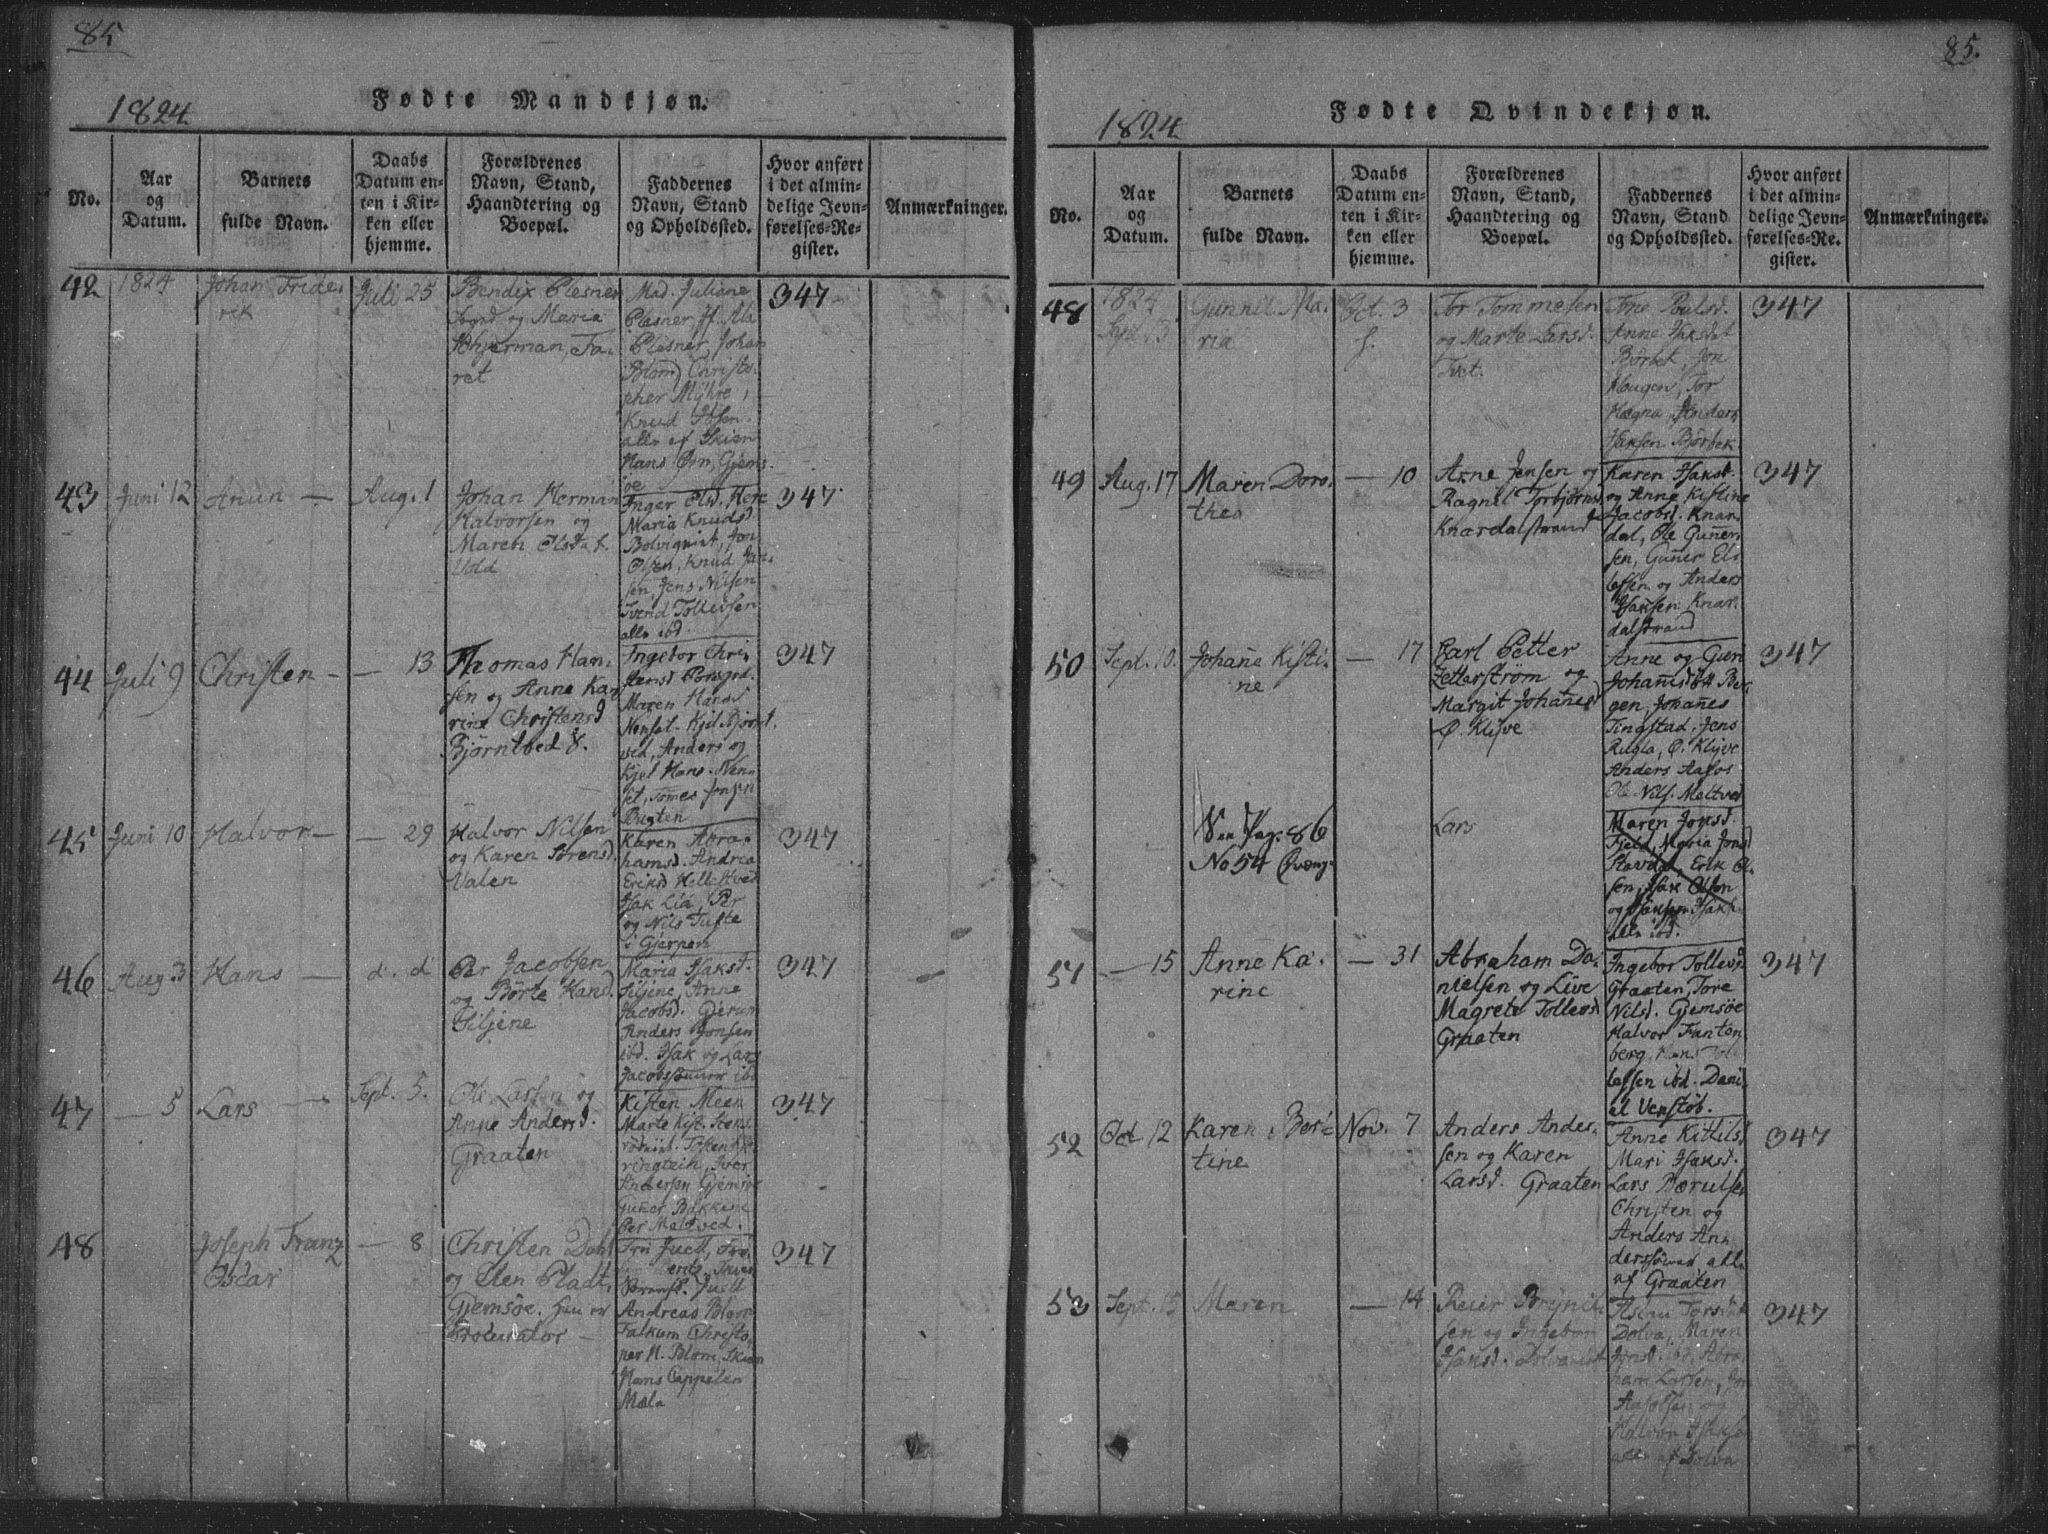 85
Fødte Mandkjøn.
1824
No.
Aar
og
Datum.
Barnets
fulde Navn.
Daabs
Datum en-
ten i Kir-
ken eller
hjemme.
Forældrenes
Navn, Stand,
Haandtering og
Boepæl.
Faddernes
Navn, Stand
og Opholdssted.
Hvor anført
i det almin-
delige Jevn-
førelses-Re-
gister.
Anmærkninger.
42
1824
Johan Fride
rik
Juli 25
Bendix Plesner
og Maria
Faret
Mad. Juliane
Plesner
Plesner, Johan
Blom, Christo-
pher Myhre,
Knud Ibsen
alle af Skien
Hans Ørn, Gjems-
øe
347
43
Juni 12
Anun
Aug. 1
Johan Herman
Halvorsen og
Maren Olsdat.
Vold
Inger Olsd.
Maria Knudsd
Bolvigmit, Jon
Olsen, Knud Jan-
sen, Jens Nilsen
Svend Tollevsen
alle ibd.
347
44
Juli 9
Christen
13
Thomas Han-
sen og Anne Ka-
rine Christensd
Bjørntved
Ingebor Chri-
stensd Porsgrd.
Maren Hansd
Nenset. Kjel Bjørnt-
ved, Anders og
Kjel Hans. Nen-
set, Tomes Jensen
Bugten
347
45
Juni 10
Halvor
29
Halvor Nilsen
og Karen Sørensd.
Valen
Karen Abra-
hamsd. Andrea
Eriksd Hellestved
Isak Lia, Per
og Nils Tufte
i Gjerpen
347
46
Aug. 3
Hans
d. d
Per Jacobsen
og Børte Hansd.
Siljene
Maria Isaksd.
Siljene, Anne
Jacobsd. Gjerum
Anders Jonsen
ibd. Isak og Lars
Jacobssønner ibd
347
47
5
Lars
Sept. 5.
Ole Larsen og
Anne Andersd.
Graaten
Kisten Meen
Marte Kist. Stens-
Iver
Andersen Gjemsøe
Guner Bakkene
Per Meltved.
347
48
Joseph Franz
Oscar
8
Christen Dahl
og Elen Pladt,
Gjemsøe. Han er
Procurator
Fru Juell,
Juell
Andreas Blom
Falkum Christo-
per H. Blom, Skien
Hans Cappelen
Mæla
347
85.
Fødte Qvindekjøn.
1824
No.
Aar
og
Datum.
Barnets
fulde Navn.
Daabs
Datum en-
ten i Kir-
ken eller
hjemme.
Forældrenes
Navn, Stand,
Haandtering og
Boepæl.
Faddernes
Navn, Stand
og Opholdssted.
Hvor anført
i det almin-
delige Jevn-
førelses-Re-
gister.
Anmærkninger.
48
1824
Sept. 13
Gunnil Ma-
ria
Oct. 3
Tor Tommesen
og Marte Larsd.
Tvet.
Tone Poulsd.
Anne Isaksdat
Børbek, Jon
Haugen, Tor
Hægna, Anders
Isaksen Børbek
347
49
Aug. 17
Maren Doro-
thea
10
Arne Jensen og
Ragnil Torbjørnsd
Knardalstrand
Karen Isaksd
og Anne Kistine
Jacobsd. Knar-
dal, Ole Guner-
sen, Guner El-
lefsen og Anders
Hansen Knar-
dalstrand
347
50
Sept. 10.
Johane Kisti-
ne
17
Carl Petter
Zetterstrøm og
Margit Johanesd
Ø. Klyve
Anne og Gun
Johanesdøtt Ber-
gen, Johanes
Tingstad, Jens
Rugla, Ø. Klyve
Anders Aafos
Ole Nils. Meltved
347
Vee Pag: 86
No 54
Lars
Maren Jonsd.
Fjeld, Maria Jonsd
Stavdal, Erik Ol-
sen, Isak Olsen
og Hans Isaks.
alle ibd.
51
15
Anne Ka-
rine
31
Abraham Da-
nielsen og Live
Magrete Tollevsd
Graaten
Ingebor Tollevsd
Graaten, Tore
Nilsd. Gjemsøe
Halvor Fanton-
berg, Hans
lefsen ibd. Dani-
el Venstøb.
347
52
Oct 12
Karen Ber-
tine
Nov. 7
Anders Ander-
sen og Karen
Larsd. Graaten
Anne Kittilsd
Mari Isaksd.
Lars Bærulsen
Christen og
Anders An-
derssøner alle
af Graaten
347
53
Sept. 15
Maren
14
Reier Brynil-
sen og Ingebor
Isaksd. Dolva
Dolva, Maren
ibd, Abra-
ham Larsen,
og
Halvor Isaks
alle af Dolva
347